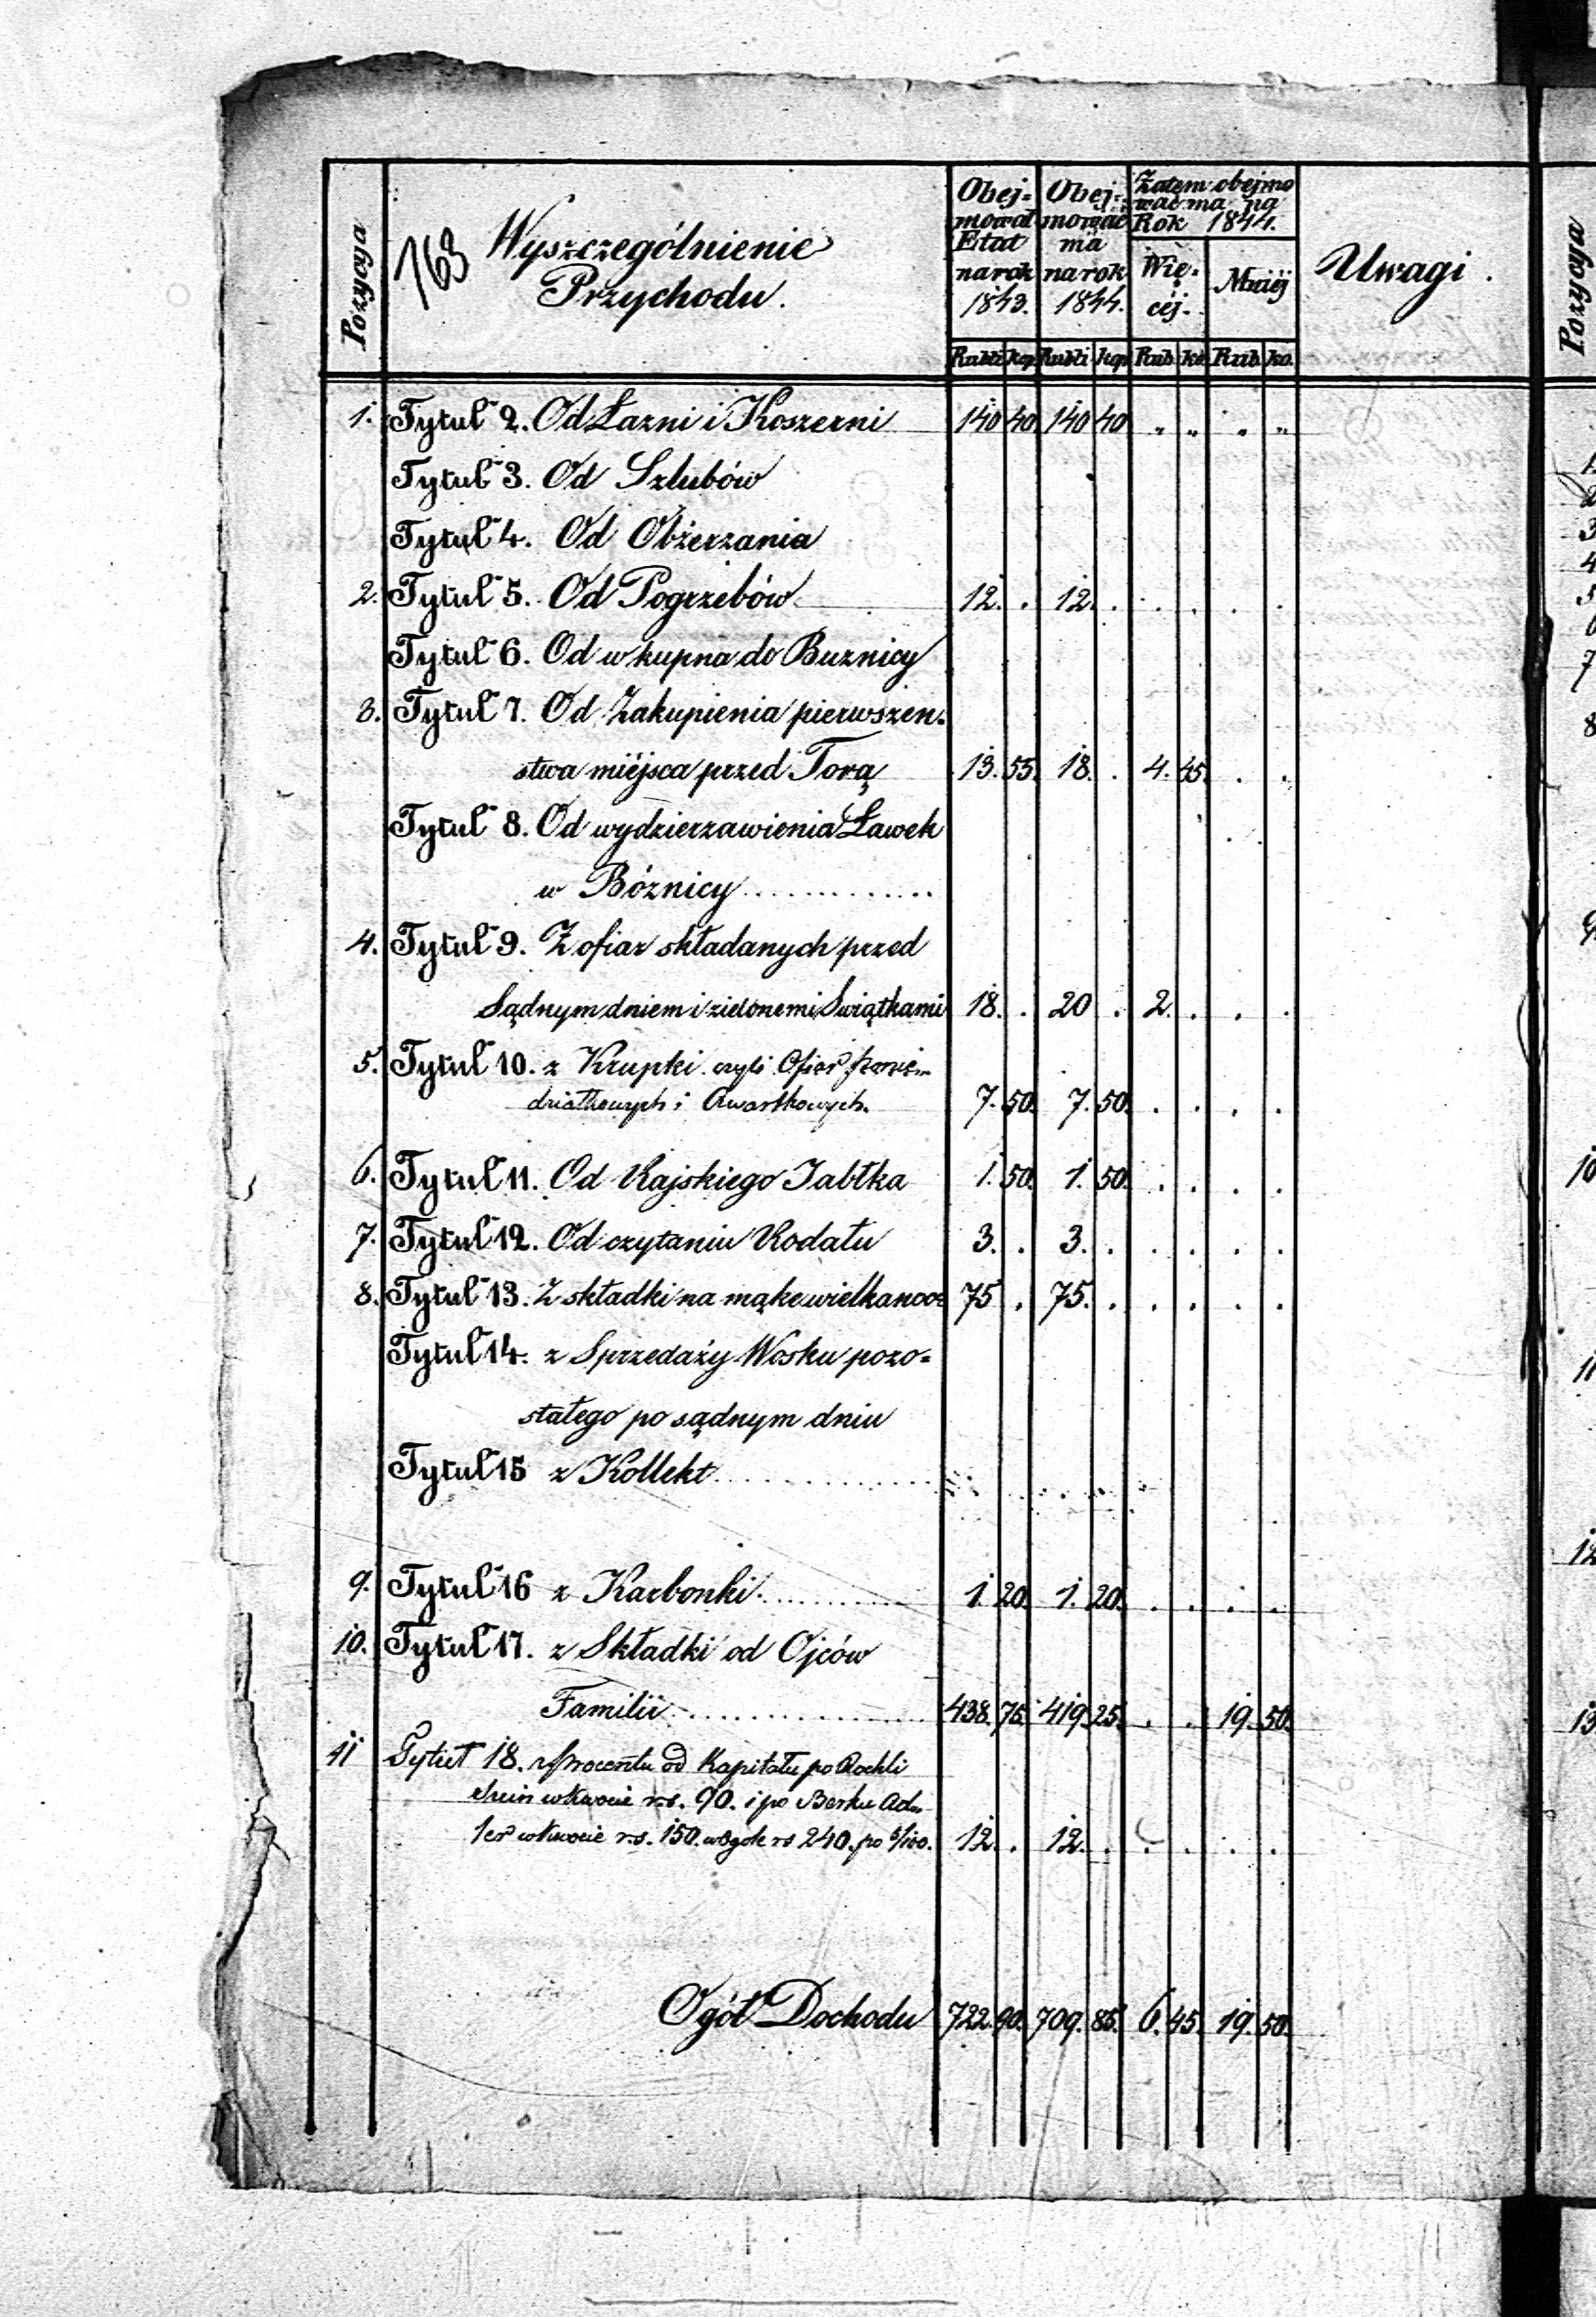 Pozycya
163
Wyszczególnienie
Przychodu.
Obej-
mował
Etat
na rok
1843.
Obej-
mować
ma
na rok
1844.
Zatem obejmo
wać ma na
Rok 1844.
Wię-
céj.
Mniéj
Uwagi.
Rubli kop Rubli kop Rub. ko. Rub. ko.
1. Tytuł 2. Od Łazni i Koszerni 140 40 140 40 " " " "
Tytuł 3. Od Szlubów
Tytuł 4. Od Obżerzania
2. Tytuł 5. Od Pogrzebów 12. . 12. . . . . .
Tytuł 6. Od wkupna do Buznicy
3. Tytuł 7. Od Zakupienia pierwszen-
stwa miéjsca przed Torą 13. 55. 18. . 4. 45. . .
Tytuł 8. Od wydzierzawienia Ławek
w Bóznicy.............
4. Tytuł 9. Z ofiar składanych przed
Sądnym dniem i zielonemi Swiątkami 18. . 20 . 2. . . .
5. Tytuł 10. z Krupki czyli Ofiar Ponie-
działkowych i Czwartkowych. 7. 50. 7. 50. . . . .
6. Tytuł 11. Od Rajskiego Jabłka 1. 50. 1. 50. . . . .
7. Tytuł 12. Od czytaniu Rodału 3. . 3. . . . . .
8. Tytuł 13. Z składki na mąke wielkanoc 75 . 75. . . . . .
Tytuł 14. z Sprzedaży Wosku pozo-
stałego po sądnym dniu
Tytuł 15 z Kollekt..............
9. Tytuł 16 z Karbonki........... 1. 20. 1. 20. . . . .
10. Tytuł 17. z Składki od Ojców
Familii.............. 438. 75. 419. 25. . . 19. 50.
11 Tytuł 18. z Procentu od Kapitału po Rochli
w kwocie rs. 90. i po Berku Ad-
ler w kwocie rs. 150. wogóle rs 240. po 5/100. 12. . 12. . . . . .
Ogół Dochodu 722. 90. 709. 85. 6. 45. 19. 50.
Pozycya